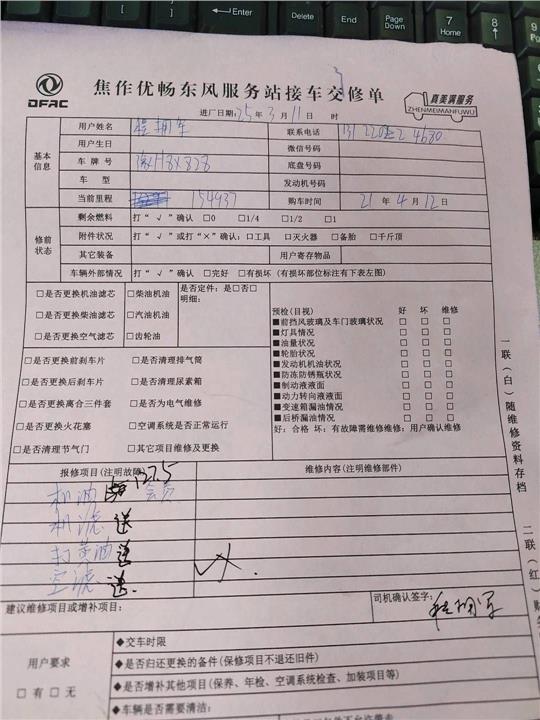 Delete
End
Page Down
7 Home
8
Enter
DFAC
焦作优畅东风服务站接车交修单
真美满服务
ZHENMEIMANFUWU
进厂日期：25年3月11日 时
基本信息
用户姓名
联系电话
用户生日
微信号码
车牌号 豫H8X828
底盘号码
车型
发动机号码
当前里程 154937
购车时间 21年4月12日
修前状态
剩余燃料 打“√”确认 □0 □1/4 □1/2 □1
附件状况 打“√”或打“×”确认：□工具 □灭火器 □备胎 □千斤顶
其它装备
用户寄存物品
车辆外部情况 打“√”确认 □完好 □有损坏（有损坏部位标注有下表左图）
□是否更换机油滤芯 □柴油机油 是否定件：是□否□
明细：
□是否更换柴油滤芯 □汽油机油
□是否更换空气滤芯 □齿轮油
预检（目视） 好 坏 维修
■前挡风玻璃及车门玻璃状况 □ □ □
■灯具情况 □ □ □
■油量状况 □ □ □
■轮胎状况 □ □ □
■发动机机油状况 □ □ □
■防冻防锈瓶状况 □ □ □
■制动液液面 □ □ □
■动力转向液液面 □ □ □
■变速箱漏油情况 □ □ □
■后桥漏油情况 □ □ □
好：合格 坏：有故障需维修维修：用户确认维修
□是否更换前刹车片 □是否清理排气筒
□是否更换后刹车片 □是否清理尿素箱
□是否更换离合三件套 □是否为电气维修
□是否更换火花塞 □空调系统是否正常运行
□是否清理节气门 □其它项目维修及更换
报修项目（注明故障）
维修内容（注明维修部件）
机油 127.5
会员
机滤 送
打黄油 送
空滤 送
建议维修项目或增补项目：
司机确认签字：
用户要求
□有 □无
◆交车时限
◆是否归还更换的备件（保修项目不退还旧件）
◆是否增补其他项目（保养、年检、空调系统检查、加装项目等）
◆车辆是否需要清洁：
一联（白）随维修资料存档
二联（红）